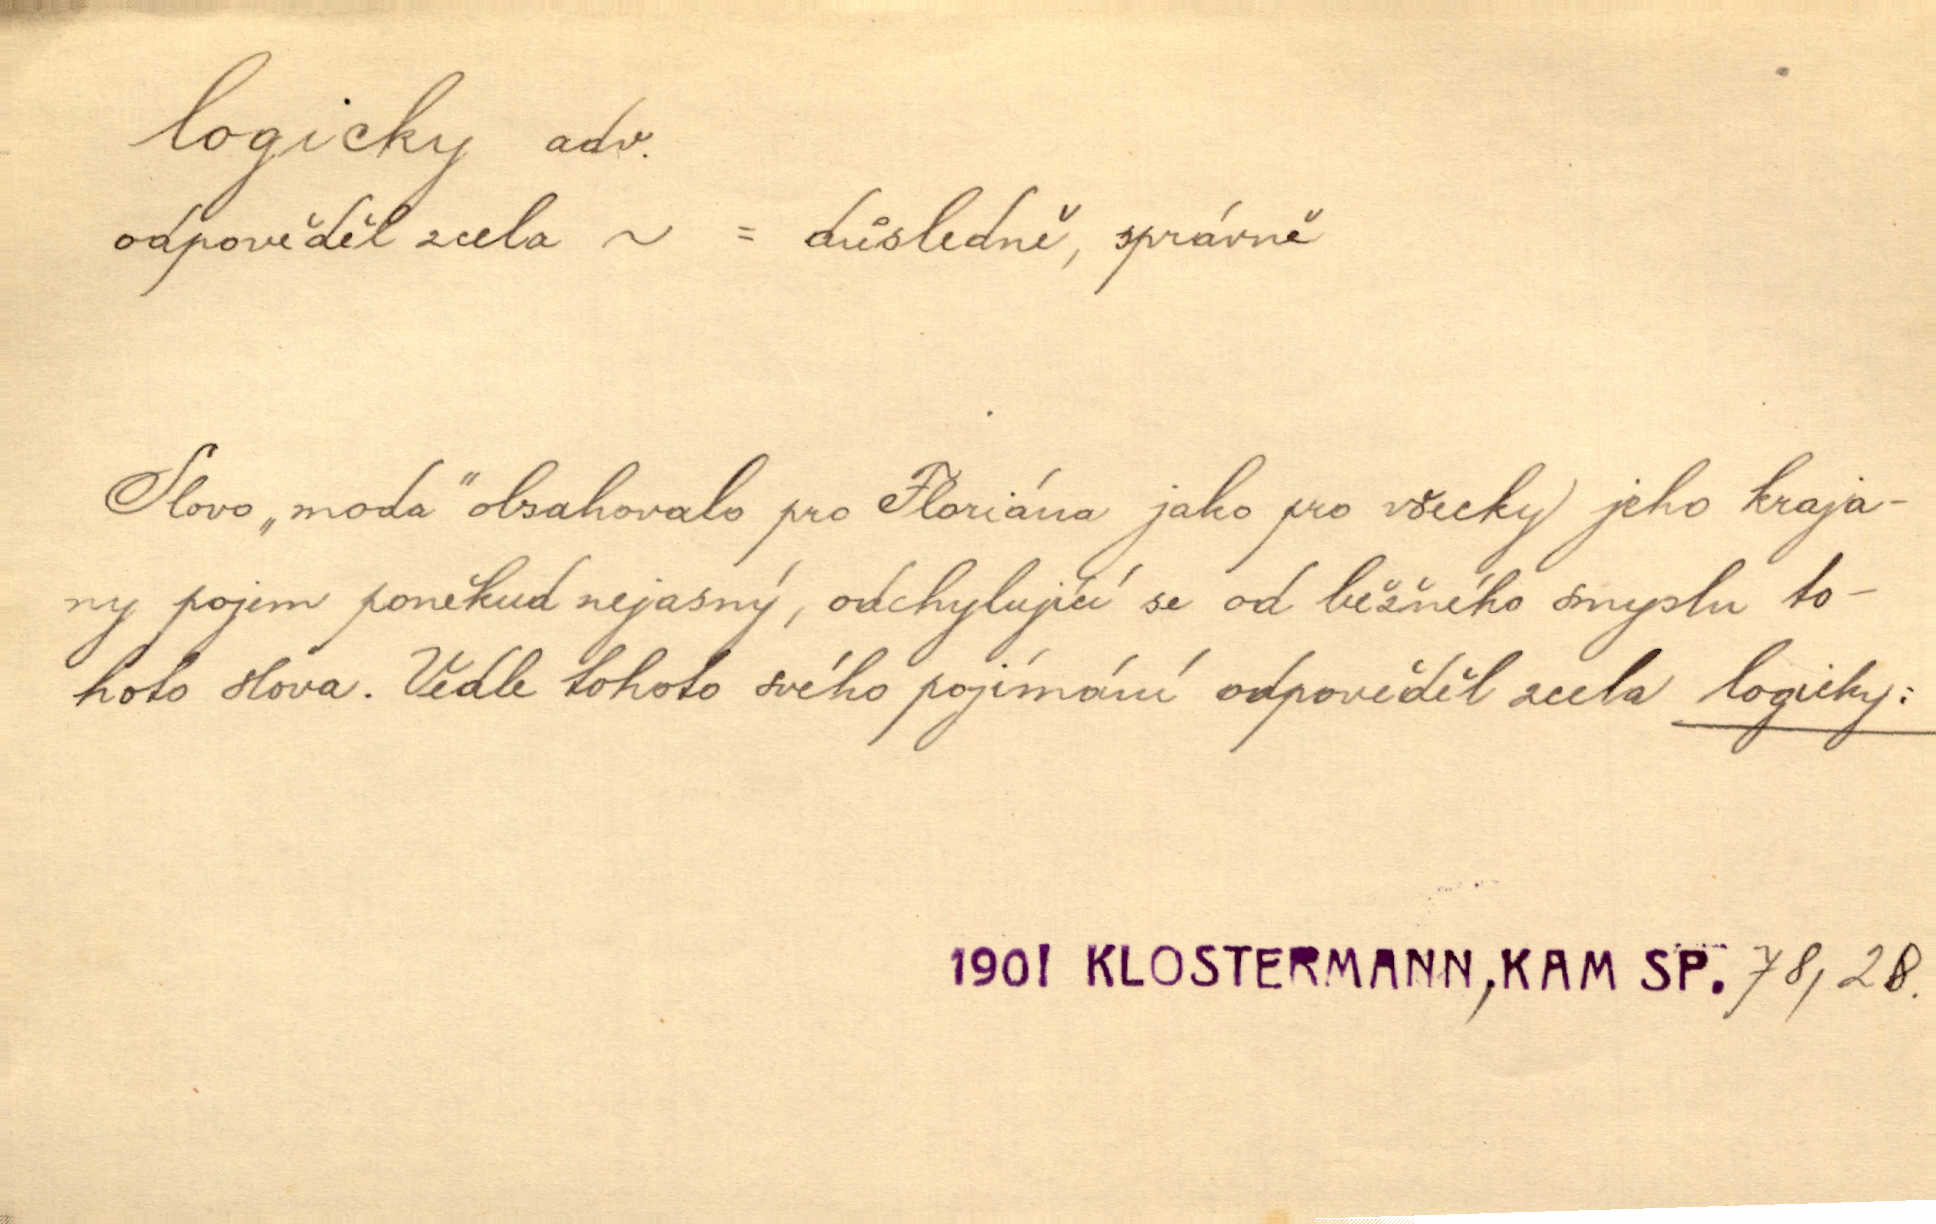 logicky adv.
odpověděl zcela ~ = důsledně, správně
Slovo „moda" obsahovalo pro Floriána jako pro všecky jeho kraja-
ny pojem poněkud nejasný, odchylující se od běžného smyslu to-
hoto slova. Vedle tohoto svého pojímání odpověděl zcela logicky:
1901 KLOSTERMANN, KAM SP. 78, 28.